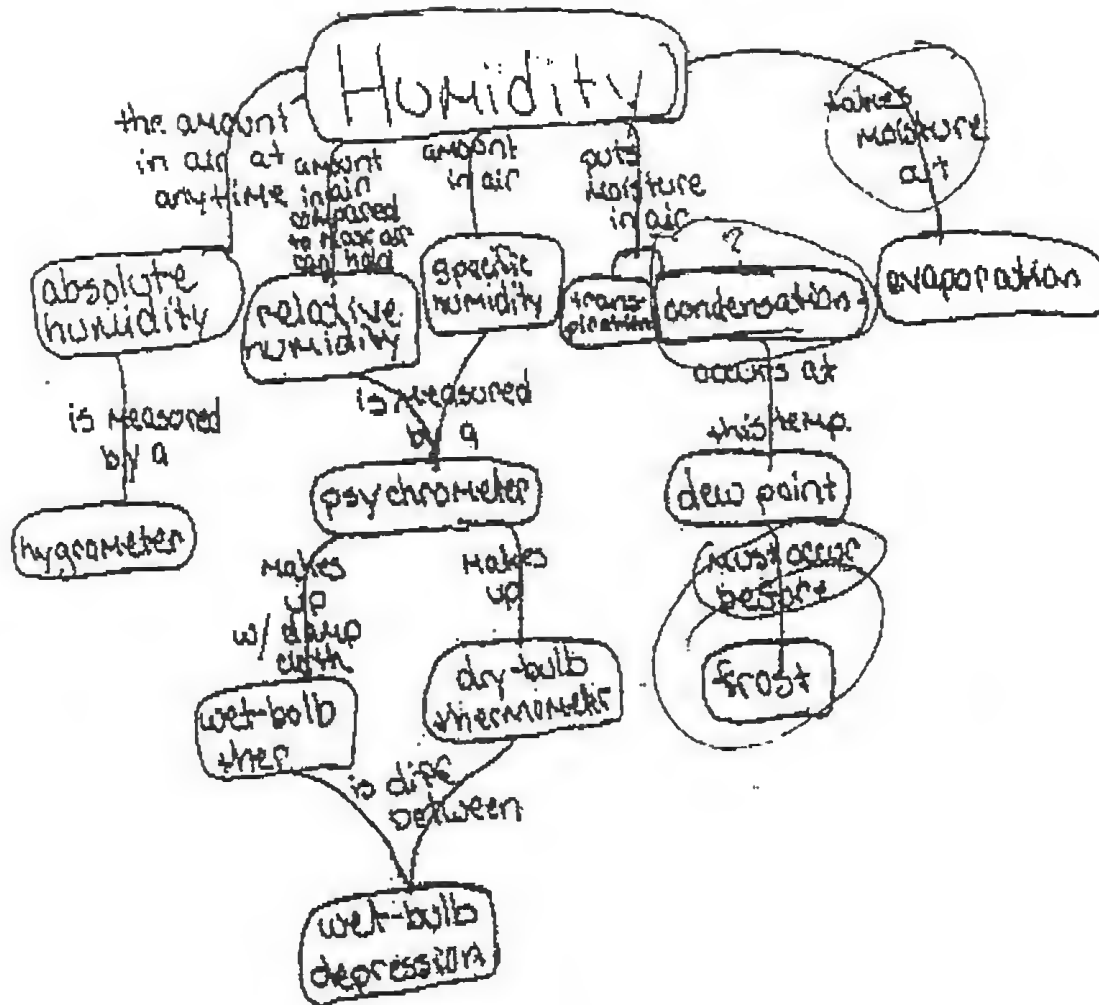 Humidity
the amount
in air at
anytime
amount
in air
compared
to max air
can hold
amount
in air
puts
moisture
in air
takes
moisture
out
absolute
humidity
relative
humidity
specific
humidity
trans-
piration
?
condensation
evaporation
is measured
by a
is measured
by a
occurs at
this temp.
hygrometer
psychrometer
dew point
makes
up
w/ damp
cloth
makes
up
must occur
before
wet-bulb
ther
dry-bulb
thermometer
frost
is diff
between
wet-bulb
depression